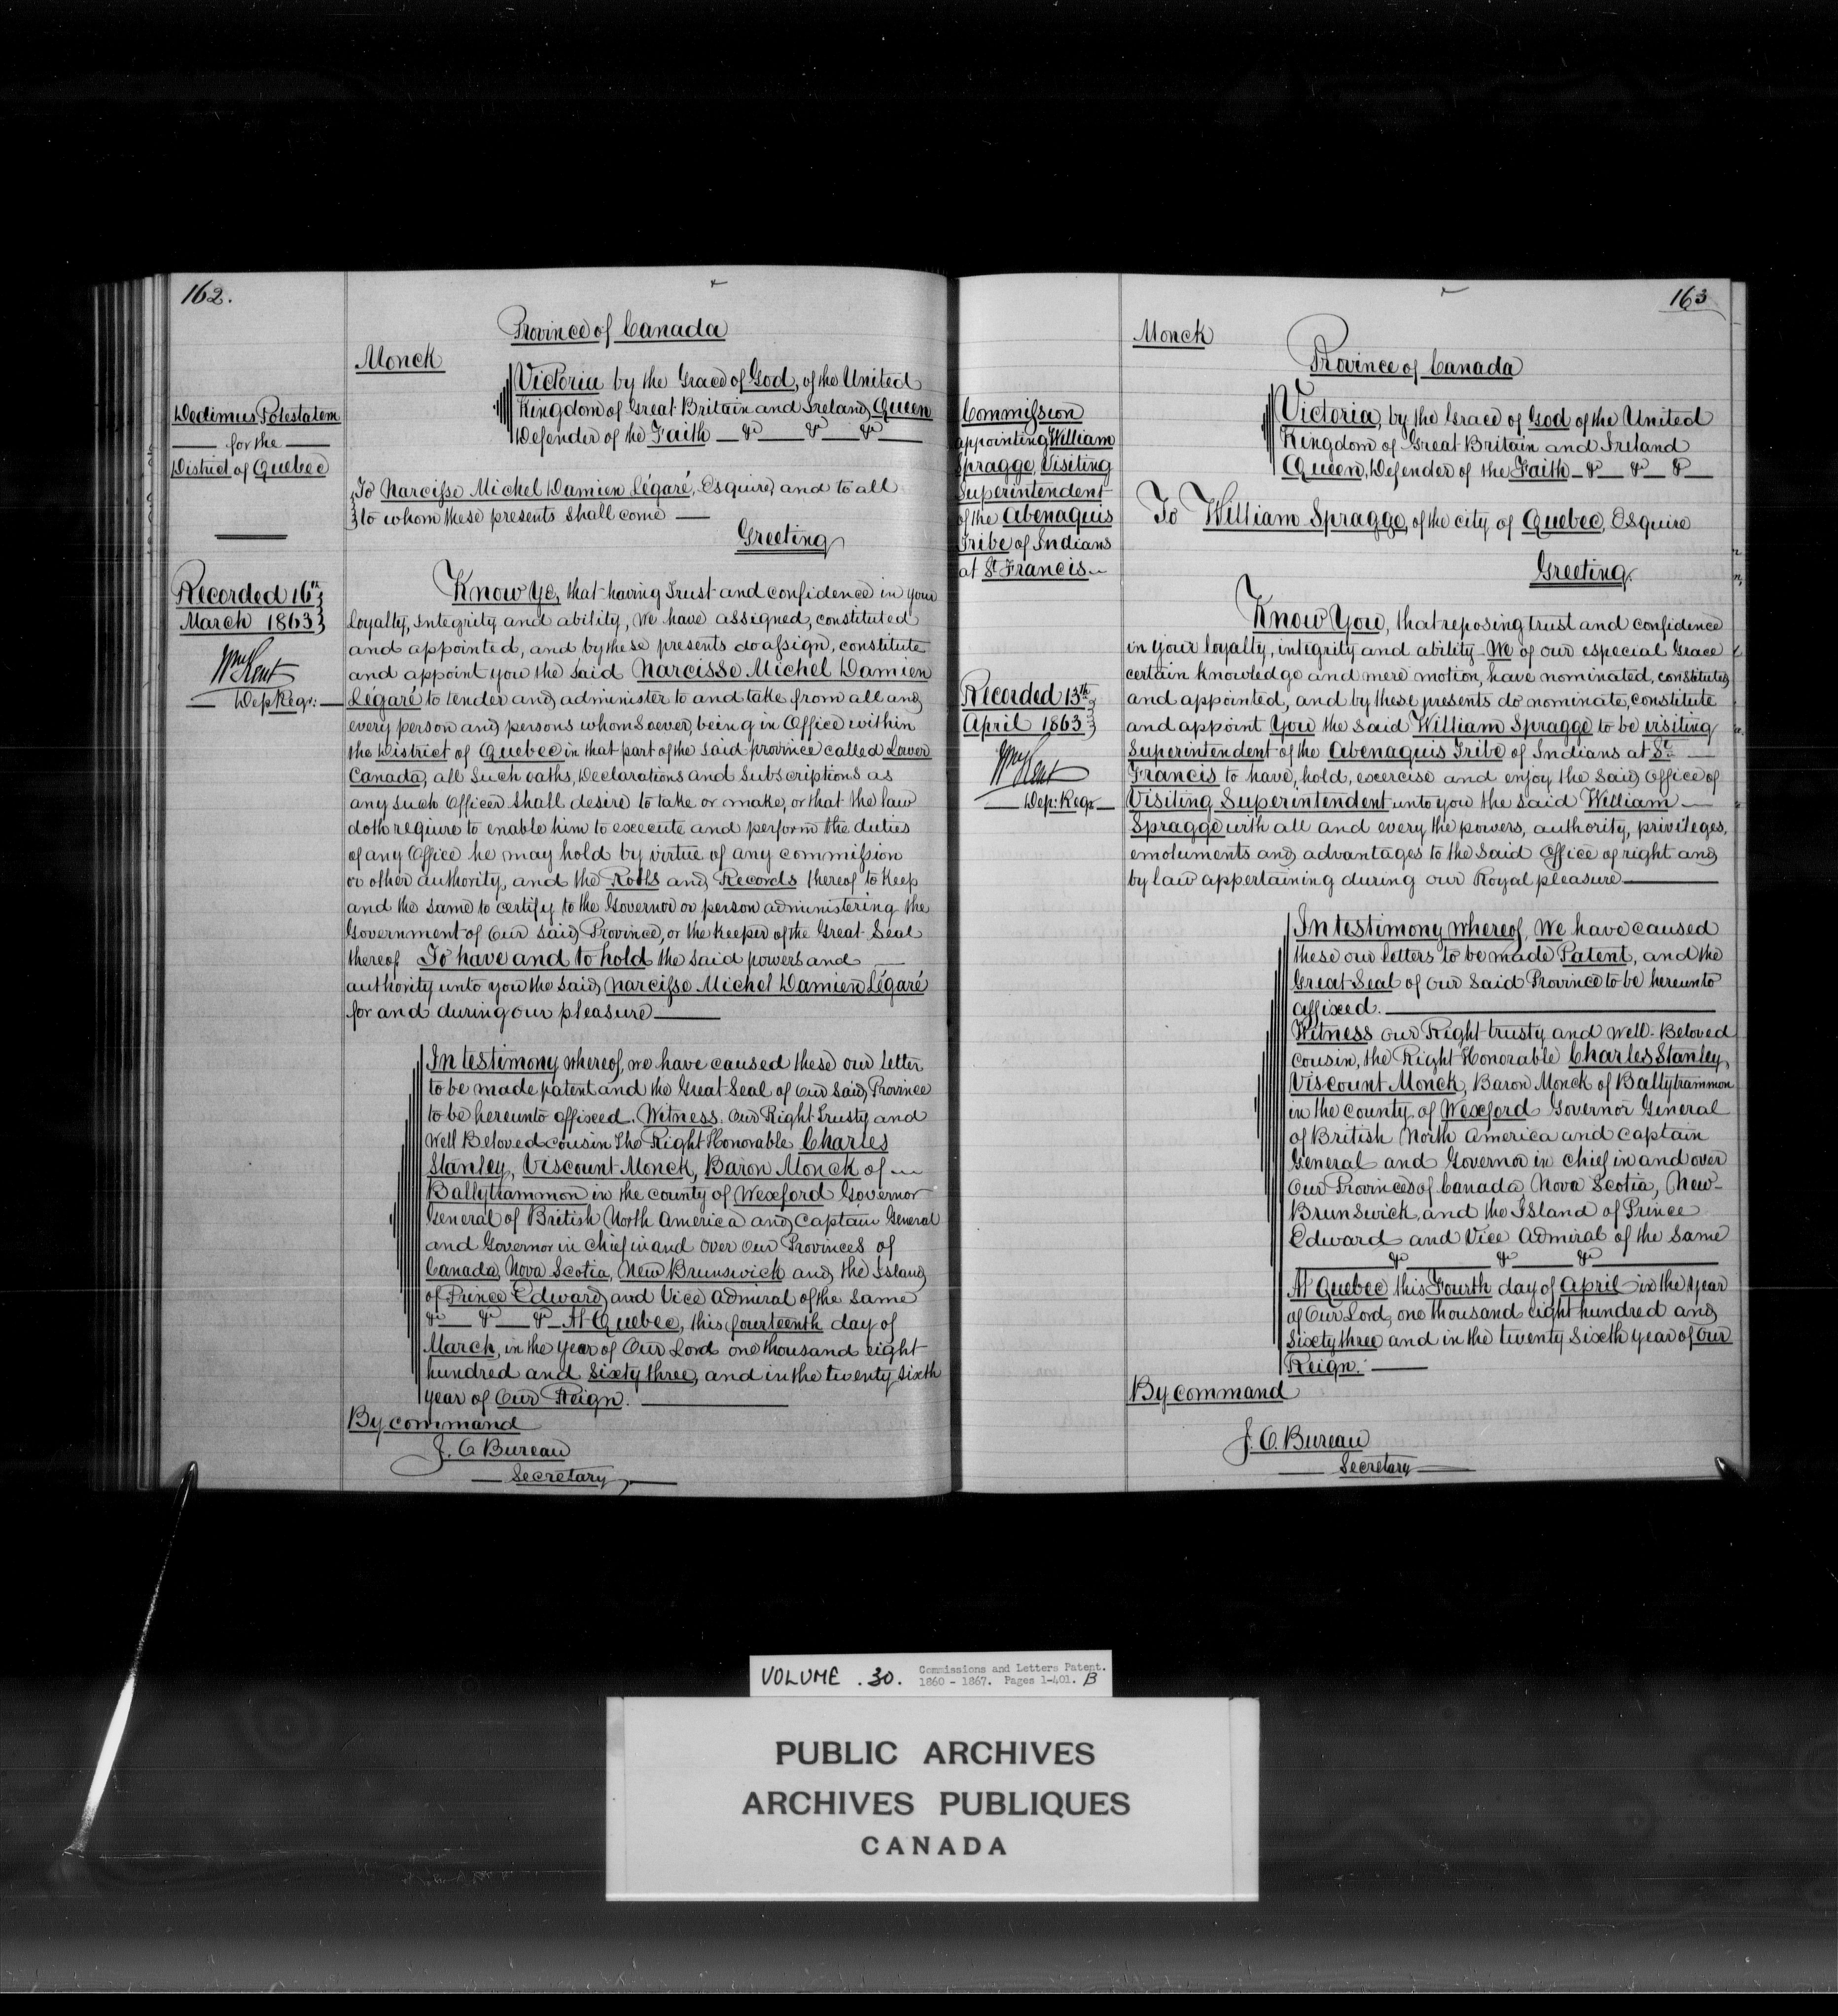 162.
Province of Canada
Monck
Victoria by the Grace of God, of the United
Kingdom of Great Britain and Ireland, Queen
Defender of the Faith — &c — &c — &c —
Dedimus Potestatem
— for the —
District of Quebec
To Narcisse Michel Damien Légaré, Esquire, and to all
to whom these presents shall come —
Greeting
Recorded 16th
March 1863
Wm Kent
Dep Regr: —
Know Ye, that having Trust and confidence in your
loyalty, Integrity and ability, We have assigned, constituted
and appointed, and by these presents do assign, constitute
and appoint you the said Narcisse Michel Damien
Légaré to tender and administer to and take from all and
every person and persons whomsoever, being in Office within
the District of Quebec in that part of the said province called Lower
Canada, all such oaths, Declarations and Subscriptions as
any such Officer shall desire to take or make, or that the law
doth reqiure to enable him to execute and perform the duties
of any Office he may hold by virtue of any commission
or other authority, and the Rolls and Records thereof to keep
and the same to certify to the Governor or person administering the
Government of Our said Province, or the keeper of the Great Seal
thereof To have and to hold the said powers and —
authority unto you the said Narcisse Michel Damien Légaré
for and during our pleasure —
In testimony whereof, we have caused these our Letter
to be made patent and the Great Seal of Our said Province
to be hereunto affixed. Witness, Our Right Trusty and
Well Beloved cousin The Right Honorable Charles
Stanley, Viscount Monck, Baron Monck of —
Ballytrammon in the county of Wexford Governor
General of British North America and Captain General
and Governor in Chief in and over Our Provinces of
Canada, Nova Scotia, New Brunswick and the Island
of Prince Edward, and Vice Admiral of the Same
&c — &c — &c — At Quebec, this fourteenth day of
March, in the year of Our Lord one thousand eight
hundred and Sixty three, and in the twenty sixth
year of Our Reign. —
By command
J. O. Bureau
— Secretary —
163
Monck
Province of Canada
Victoria, by the Grace of God of the United
Kingdom of Great Britain and Ireland
Queen, Defender of the Faith — &c — &c — &c —
Commission
appointing William
Spragge, Visiting
Superintendent
of the Abenaquis
Tribe of Indians
at St Francis —
To William Spragge, of the city of Quebec, Esquire
Greeting.
Recorded 13th
April 1863
Wm Kent
— Dep: Regr —
Know You, that reposing trust and confidence
in your loyalty, integrity and ability — We of our especial Grace
certain knowledge and mere motion, have nominated, constituted
and appointed, and by these presents do nominate, constitute
and appoint You the said William Spragge to be visiting
Superintendent of the Abenaquis Tribe of Indians at St —
Francis to have, hold, excercise and enjoy the said Office of
Visiting Superintendent unto you the said William —
Spragge with all and every the powers, authority, privileges,
emoluments and advantages to the said Office of right and
by law appertaining during our Royal pleasure —
In testimony whereof, We have caused
these our letters to be made Patent, and the
Great Seal of Our said Province to be hereunto
affixed. —
Witness Our Right trusty and Well-Beloved
cousin, the Right Honorable Charles Stanley,
Viscount Monck, Baron Monck of Ballytrammon
in the county of Wexford Governor General
of British North America and Captain
General and Governor in Chief in and over
Our Provinces of Canada, Nova Scotia, New-
Brunswick, and the Island of Prince
Edward and Vice Admiral of the Same
— &c — &c — &c —
At Quebec this Fourth day of April in the year
of Our Lord, one thousand eight hundred and
Sixty three and in the twenty Sixth year of Our
Reign. —
By command
J. O. Bureau
— Secretary —
VOLUME . 30. Commissions and Letters Patent.
1860 - 1867. Pages 1-401. B
PUBLIC ARCHIVES
ARCHIVES PUBLIQUES
CANADA